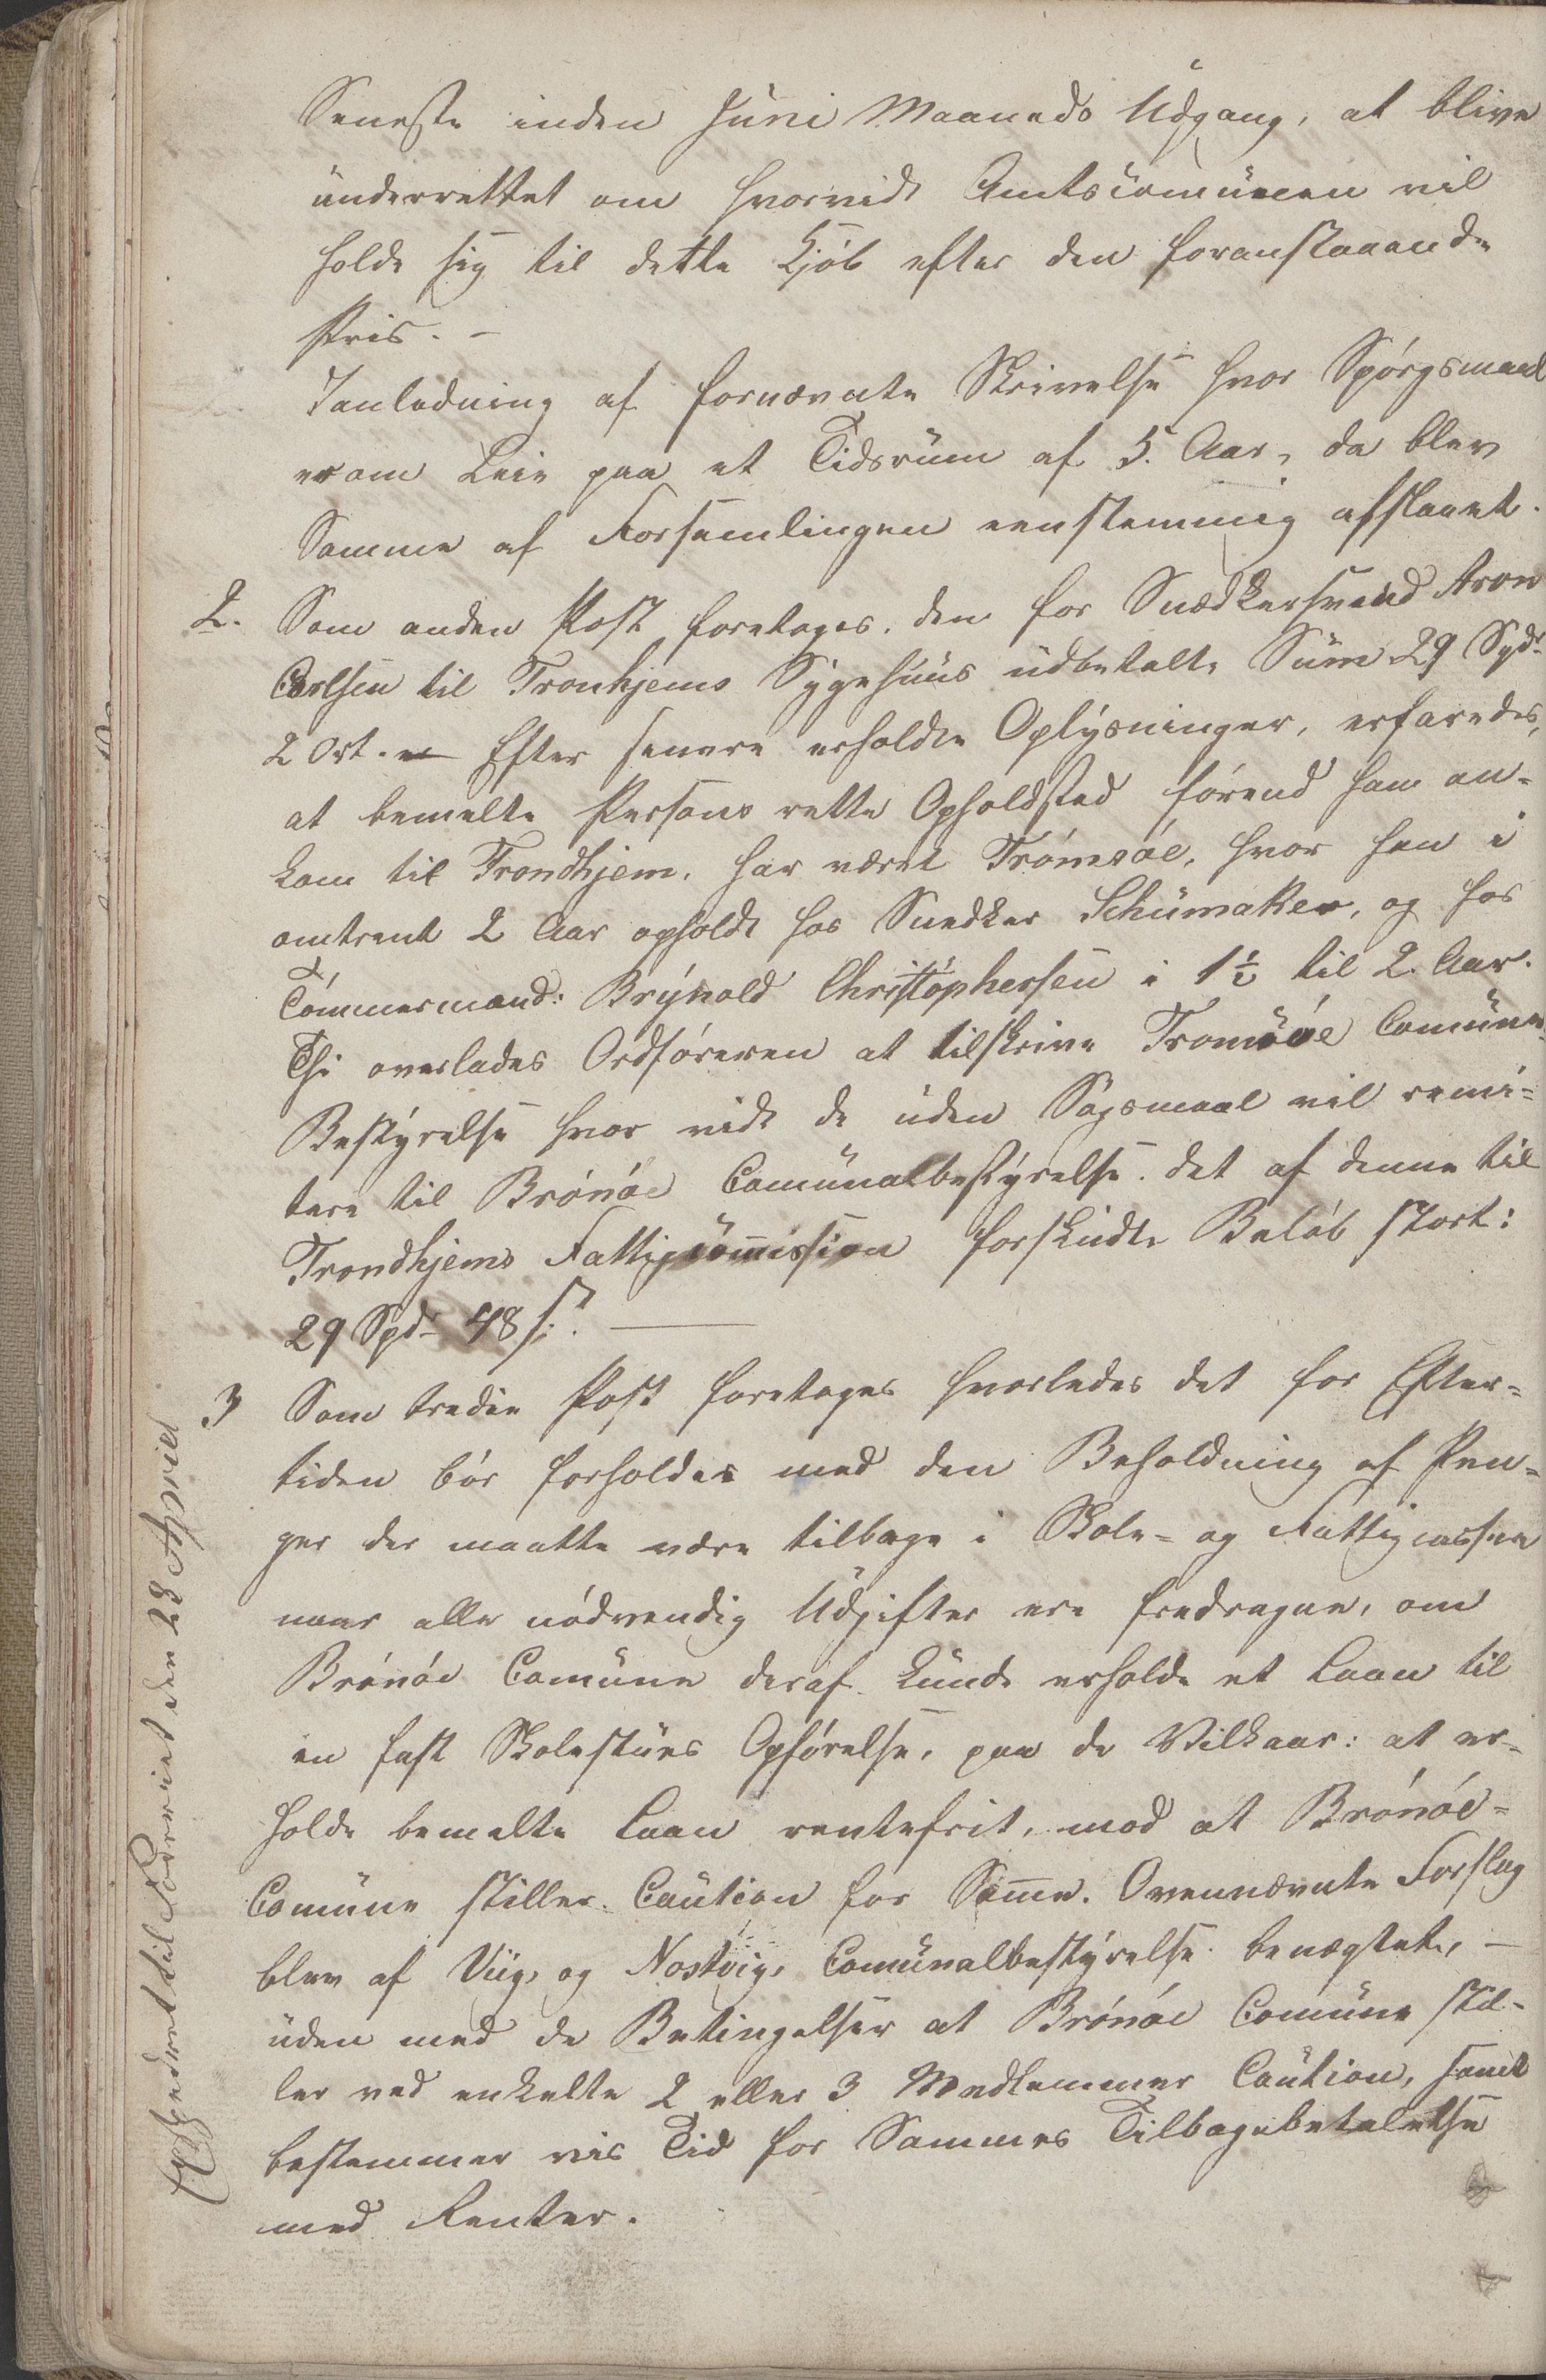 Seneste inden Juni Maaneds Udgang, at blive
underrettet om hvorvidt Amtscomunen vil
holde sig til dette Kjøb efter den foranstaaende
Pris. -
I anledning af fornævnte Skrivelse hvor Spørgsmaal
er om Leie paa et Tidsrum af 5. Aar, da blev
Samme af Forsamlingen eenstemmig afslaaet.
2. Som anden Post foretages. den for Snedkersvend Aron
Carlsen til Tronhjems Sygehuus udbetalte Sum 29 Spdr
2 Ort. Efter senere erholdte Oplysninger, erfaredes,
at bemelte Persons rette Opholdsted førend ham an-
kom til Trondhjem, har været Tromsøe, hvor han i
omtrent 2 Aar opholdt hos Snedker Schumaker, og hos
Tømmermand: Brynold Christophersen i 1½ til 2. Aar.
Thi overlades Ordføreren at tilskrive Tromsøe Comune-
Bestyrelse hvor vidt de uden Søgsmaal vil remi-
tere til Brønøe Comunalbestyrelse. det af denne til
Trondhjems Fattigcommission forskudte Beløb stort:
29 Spdr 48 s.
3 Som tredie Post foretages hvorledes det for Efter-
tiden bør forholdes med den Beholdning af Pen-
ger der maatte være tilbage i Skole- og Fattigcassen
naar alle nødvendig Udgifter ere fredragne, om
Brønøe Comune deraf kunde erholde et Laan til
en fast Skolestues Opførelse, paa de Vilkaar: at er-
holde bemelte Laan rentefrit, mod at Brønøe-
Comune stiller. Caution for Samme. Ovennævnte Forslag
blev af Viig, og Nostvig, Comunalbestyrelse. benægtet, -
uden med de Betingelser at Brønøe Comune stil-
ler ved enkelte 2 eller 3 Medlemmer Caution, samt
bestemmer vis Tid for Sammes Tilbagebetalelse
med Renter.
Expederet til Formüet den 28 Apriell